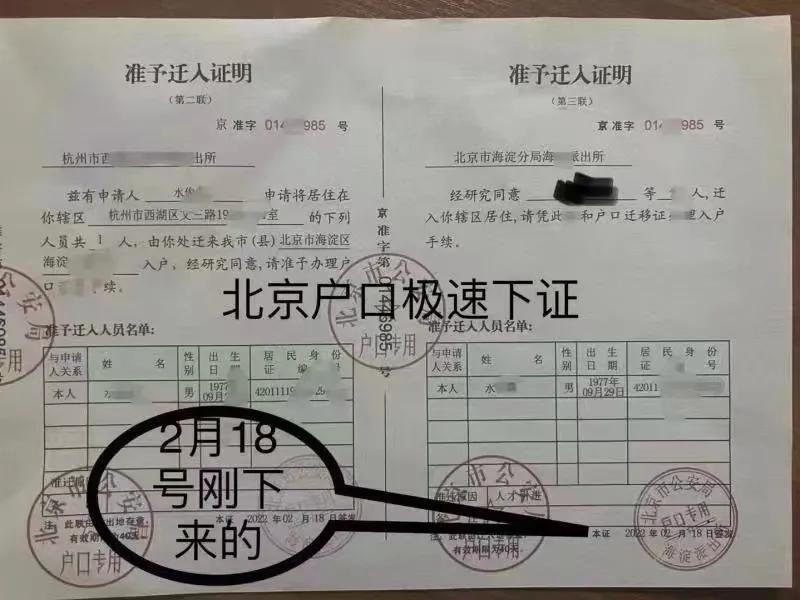 准予迁入证明
（第二联）
京 准字 014 985 号
杭州市西 出所
兹有申请人 水俊 申请将居住在
你辖区 杭州市西湖区文三路19 室 的下列
人员共 1 人，由你处迁来我市（县）北京市海淀区
海淀 入户，经研究同意，请准予办理户
口 续。
准予迁入人员名单：
与申请人关系 姓名 性别 出生日期 居民身份证编号
本人 水 男 1977年09月2 42011119 29
准迁
注：此联由 出地存查，
有效期限为40天。
本证 2022年02月18日签发
京准字第 01446985 号
准予迁入证明
（第三联）
京 准字 014 985 号
北京市海淀分局海 派出所
经研究同意 等 人，迁
入你辖区居住，请凭此 和户口迁移证 理入户
手续。
准予迁入人员名单：
与申请人关系 姓名 性别 出生日期 居民身份证编号
本人 水 男 1977年09月29日 42011
准迁原因 人才引进
有效期限为40天。
本证 2022年02月18日签发
北京市公安局
户口专用
北京户口极速下证
2月18
号刚下
来的